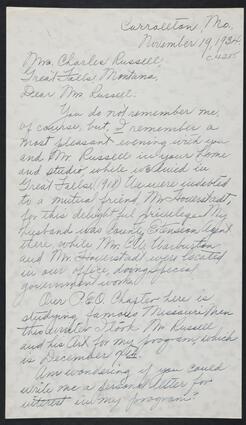 Carrollton, Mo.
November 19, 1934
Mrs. Charles Russell,
Great Falls, Montana,
Dear Mrs. Russell:
You do not remember me,
of course, but, I remember a
most pleasant evening with you
and Mr. Russell in your home
and studio, while we lived in
Great Falls (1918) We were indebted
to a mutual friend, Mr.
for this delightful privilege. My
husband was County Agent
there, while Mr. C.W. Warburton
and Mr. were located
in our office, doing special
government work.
Our P.E.O. Chapter here is
studying famous Missouri Men
this winter. I took Mr. Russell
and his Art for my program, which
is December
Am wondering if you could
write me a personal letter for
interest in my program?